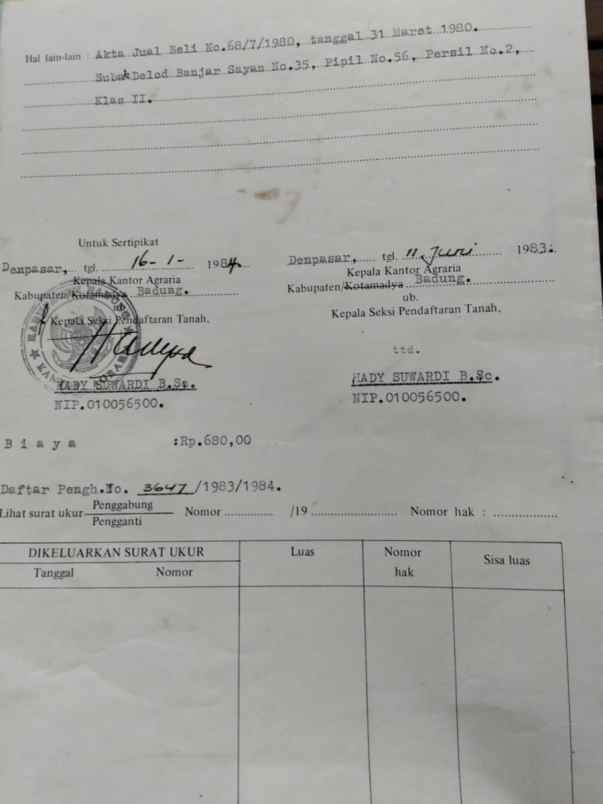 Hal lain-lain : Akta Jual Beli No.68/7/1980, tanggal 31 Maret 1980.
Subak Delod Banjar Sayan No.35, Pipil No.56, Persil No.2,
Klas II.
Untuk Sertipikat
Denpasar, tgl. 16-1- 1984.
Kepala Kantor Agraria
Kabupaten/Kotamadya Badung.
ub.
Kepala Seksi Pendaftaran Tanah,
HADY SUWARDI B.Sc.
NIP.010056500.
Denpasar, tgl. 11 Juni 1983.
Kepala Kantor Agraria
Kabupaten/Kotamadya Badung.
ub.
Kepala Seksi Pendaftaran Tanah,
ttd.
HADY SUWARDI B.Sc.
NIP.010056500.
Biaya :Rp.680,00
Daftar Pengh.No. 3647/1983/1984.
Lihat surat ukur Penggabung Nomor /19 Nomor hak :
Pengganti
DIKELUARKAN SURAT UKUR Luas Nomor hak Sisa luas
Tanggal Nomor